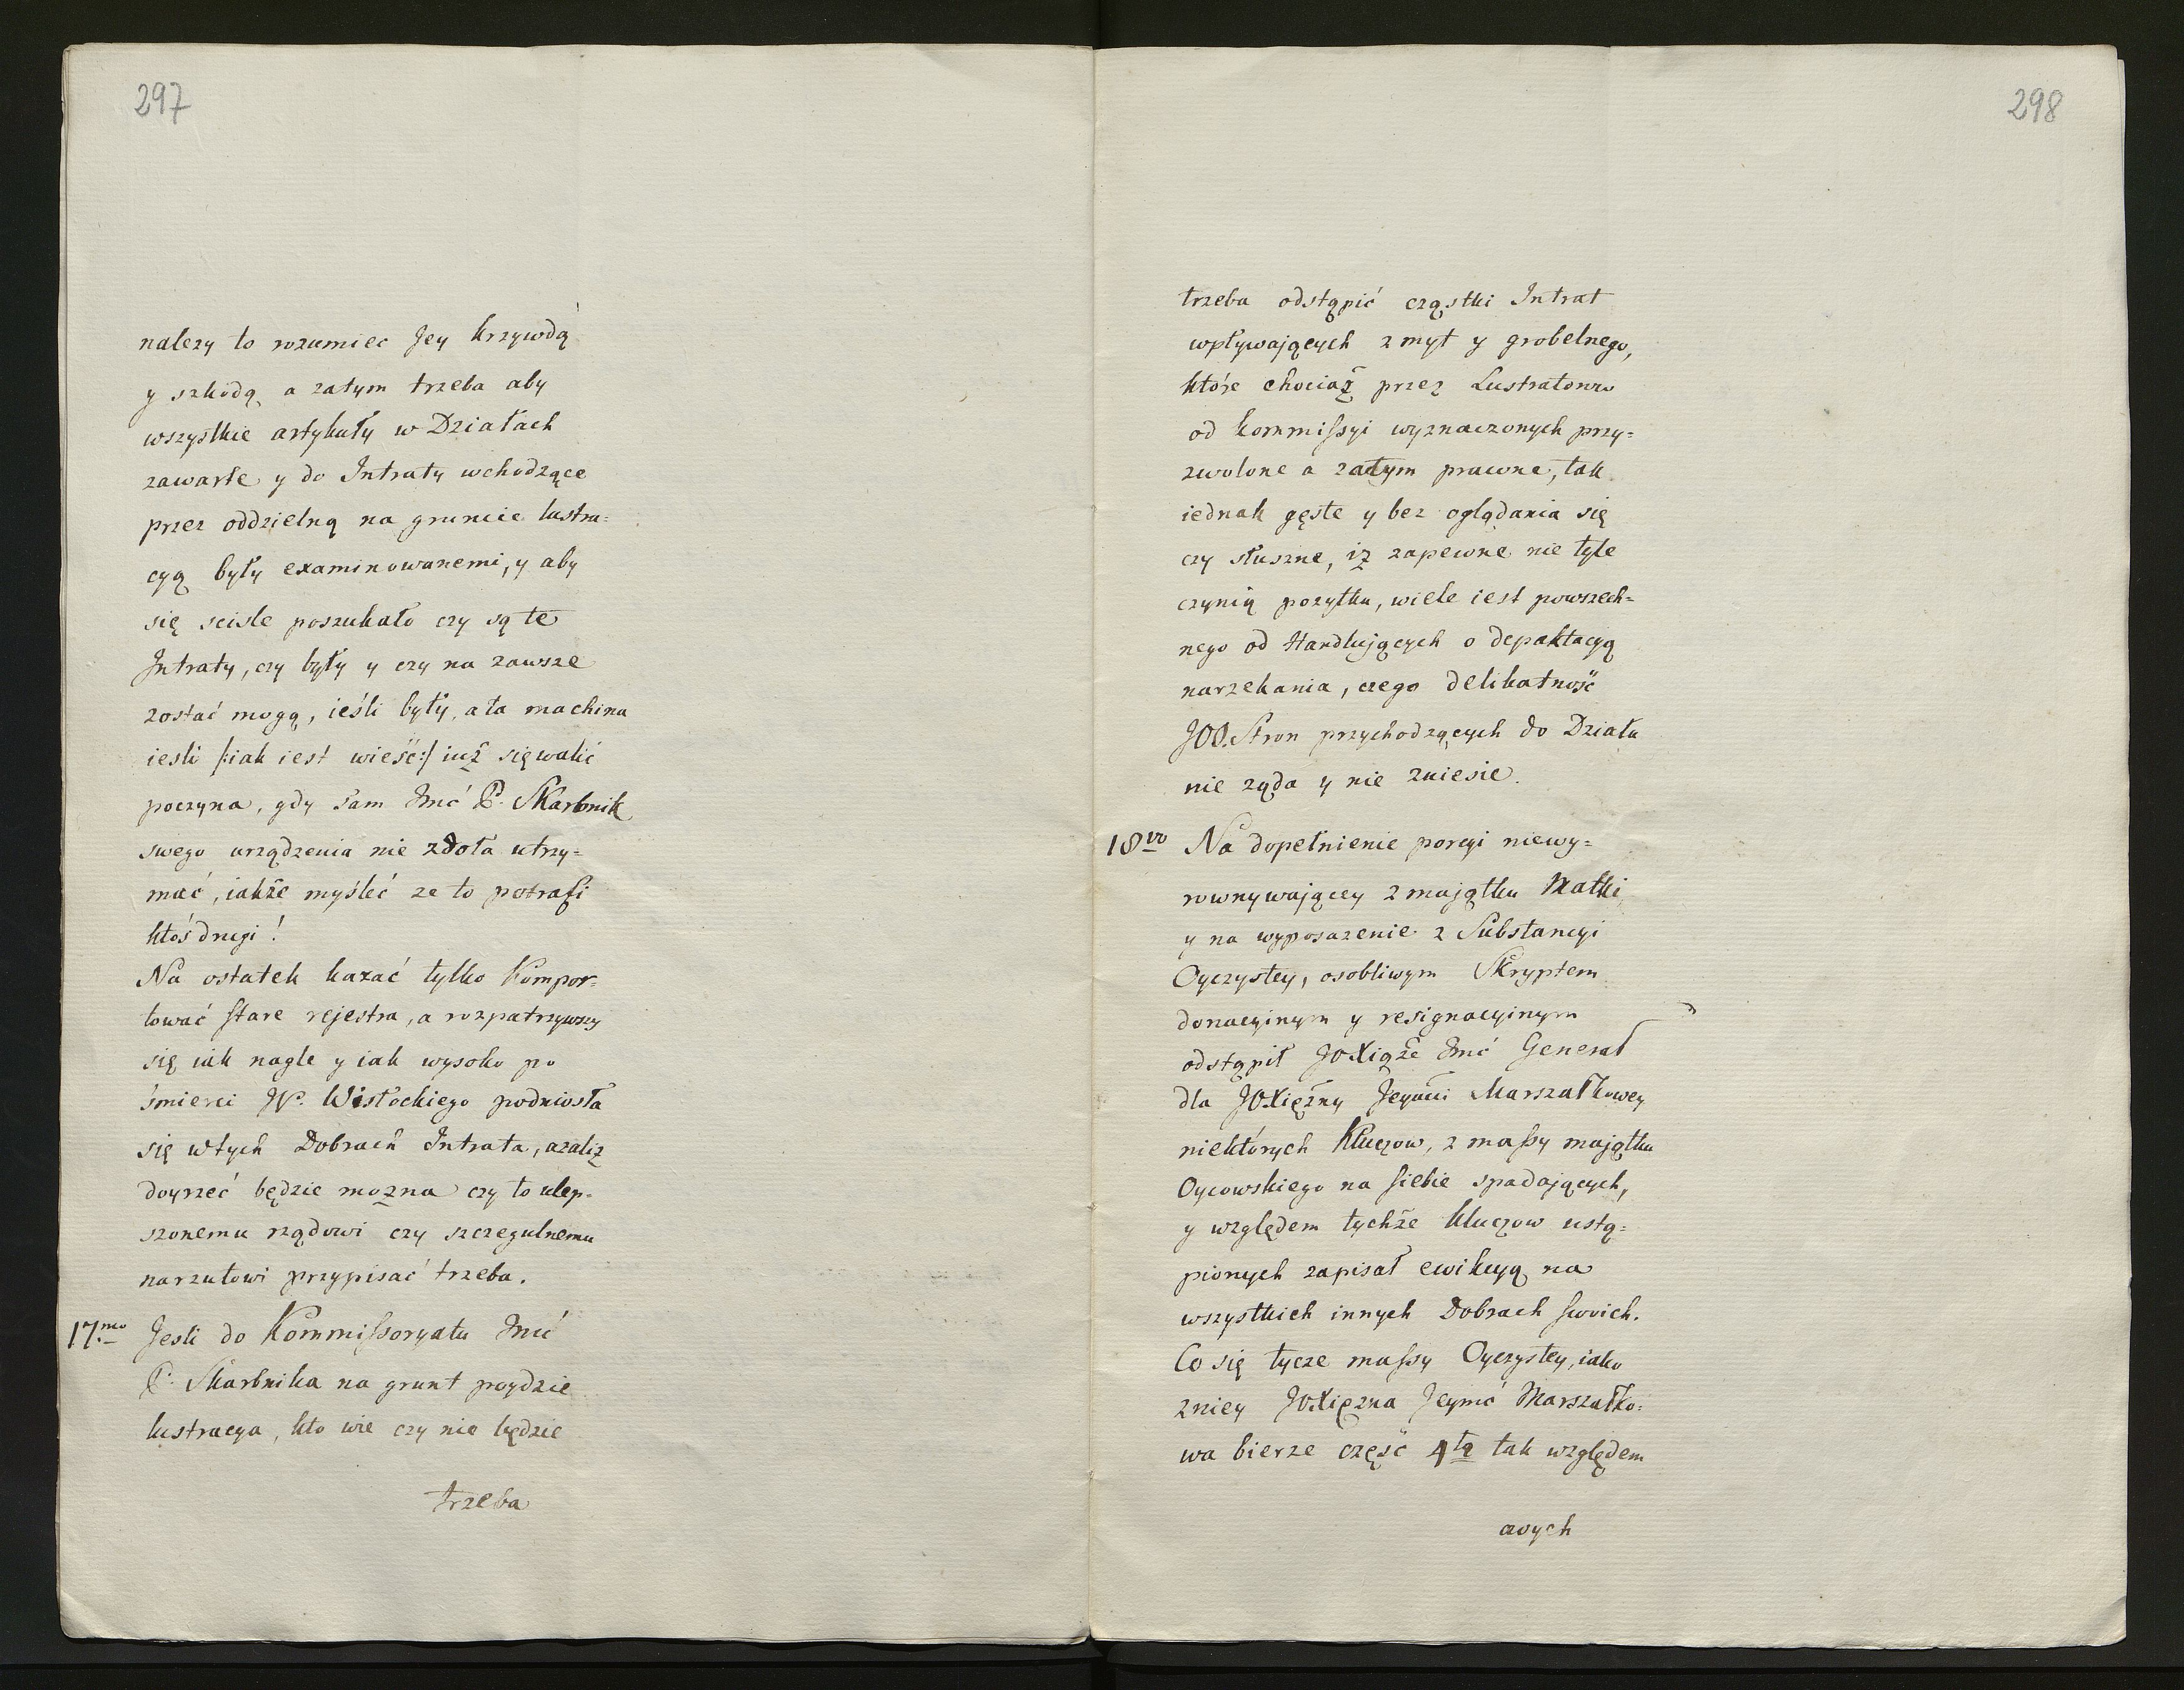 297
należy to rozumiec Jey krzywdą
y szkodą a zatym trzeba aby
wszystkie artykuły w Działach
zawarte y do Intraty wchodzące
przez oddzielną na gruncie lustra=
cyą były examinowanemi, y aby
się scisle poszukało czy są te
Intraty, czy były y czy na zawsze
zostać mogą, ieśli były, a ta machina
iesli /:iak iest wieść:/ iuż się walić
poczyna, gdy sam Jmć P. Skarbnik
swego urządzenia nie zdoła utrzy=
mać, iakże myśleć ze to potrafi
ktoś drugi!
Na ostatek kazać tylko kompor=
tować stare rejestra, a rozpatrzywszy
się iak nagle y iak wysoko po
śmierci JP. Wisłockiego podniosła
się w tych Dobrach Intrata, azaliż
doyrzeć będzie można czy to ulep=
szonemu rządowi czy szczegulnemu
narzutowi przypisać trzeba.
17.mo Jesli do Kommissoryatu Jmć
P. Skarbnika na grunt poydzie
lustracya, kto wie czy nie będzie
trzeba
298
trzeba odstąpić cząstki Intrat
wpływających z myt y grobelnego,
które chociaż przez Lustratorow
od kommissyi wyznaczonych przy=
zwolone a zatym prawne, tak
iednak gęste y bez oglądania się
czy słuszne, iż zapewne nie tyle
czynią pozytku, wiele iest powszech=
nego od Handlujących o depaktacyą
narzekania, czego delikatność
JOO. Stron przychodzących do Działu
nie ząda y nie zniesie.
18vo Na dopełnienie porcyi niewy=
rownywającey z majątku Matki
y na wyposazenie z Substancyi
Oyczystey, osobliwym Skryptem
donacyinym y resignacyinym
odstąpił JOXiąże Jmć Generał
dla JOXiężny Jeymci Marszałkowey
niektórych Kluczow, z massy majątku
Oycowskiego na siebie spadających,
y względem tychże kluczow ustą=
pionych zapisał ewikcyą na
wszystkich innych Dobrach swoich.
Co się tycze massy Oyczystey, iako
zniey JOXiężna Jeymć Marszałko=
wa bierze część 4tą tak względem
owych